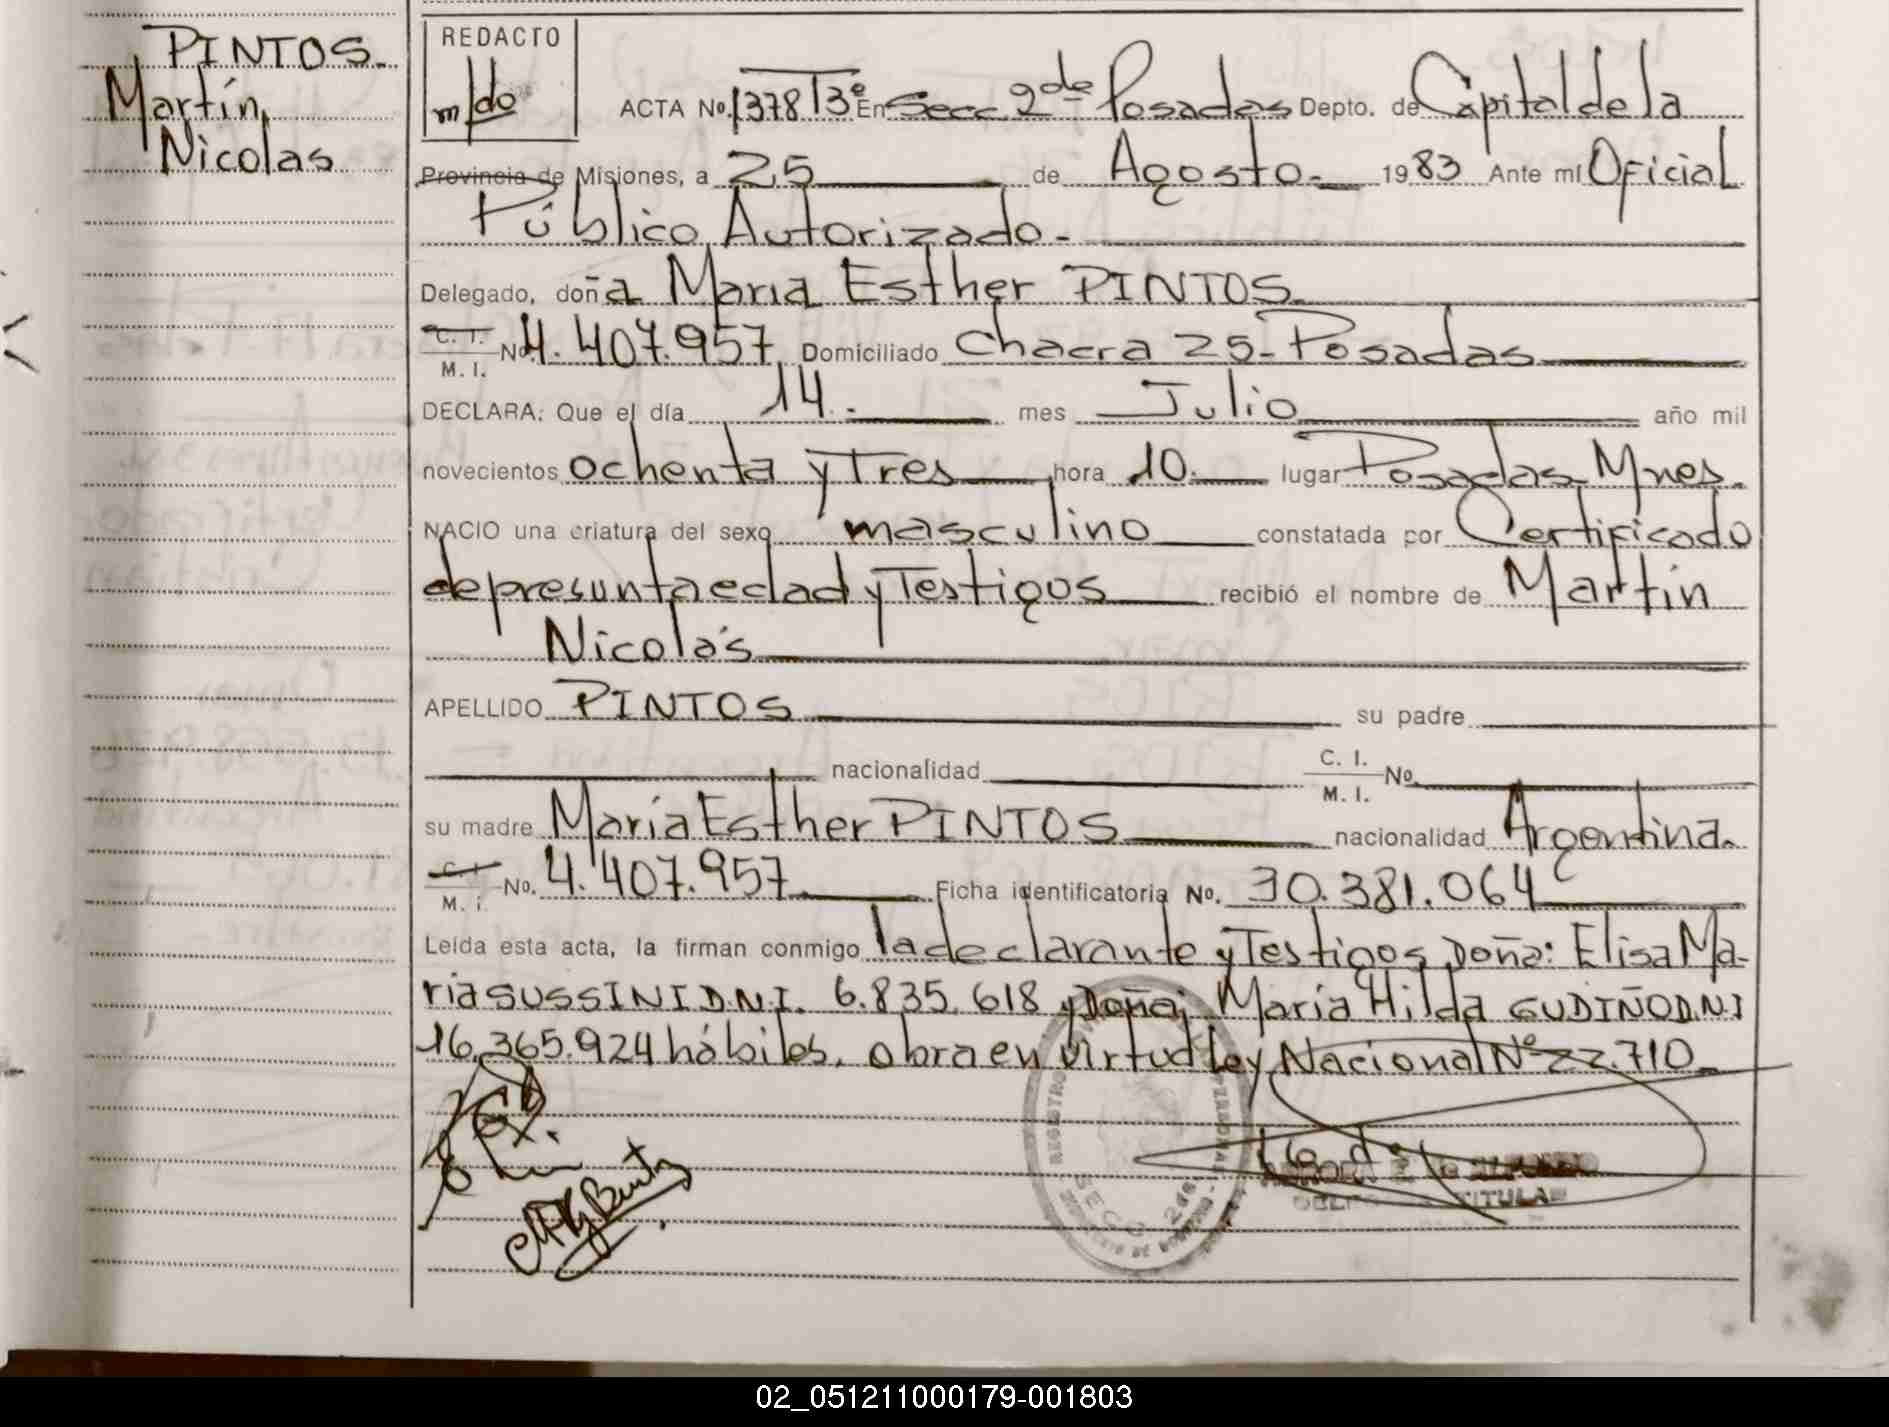 PINTOS.
Martín
Nicolas
REDACTO
m/do
ACTA No. 1378 T3º En Secc 2da de Posadas Depto. de Capital de la
Provincia de Misiones, a 25 de Agosto. 1983 Ante mí Oficial
Público Autorizado.
Delegado, doña Maria Esther PINTOS.
C. I.
M. I.
No 4.407.957 Domiciliado Chacra 25-Posadas
DECLARA: Que el día 14. mes Julio año mil
novecientos ochenta y Tres hora 10. lugar Posadas Mnes.
NACIO una criatura del sexo masculino constatada por Certificado
de presunta edad y Testigos recibió el nombre de Martín
Nicolás
APELLIDO PINTOS su padre
nacionalidad C. I.
M. I. No.
su madre María Esther PINTOS nacionalidad Argentina.
C. I.
M. I. No. 4.407.957 Ficha identificatoria No. 30.381.064
Leída esta acta, la firman conmigo la declarante y Testigos Doña: Elisa Ma-
ria SUSSINI D.N.I. 6.835.618 y Doña; María Hilda GUDIÑO D.N.I
16.365.924 hábiles. obra en virtud ley Nacional Nº 22.710
REGISTRO
PERSONAS
SECC 2da
TITULAR
02_051211000179-001803